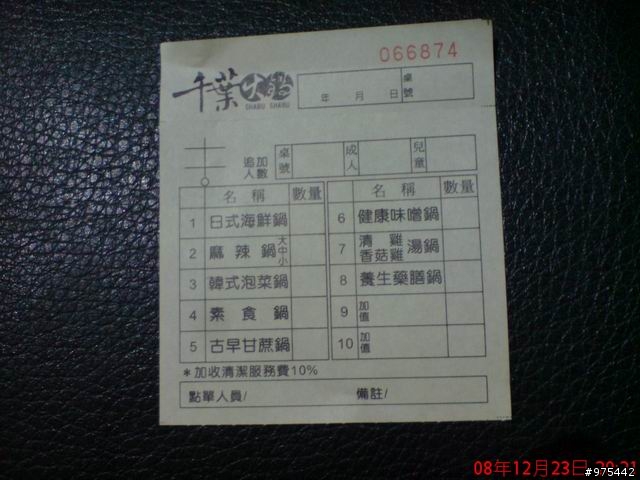 066874
千葉火鍋
SHABU SHABU
年 月 日 桌號
追加人數 桌號 成人 兒童
名稱 數量 名稱 數量
1 日式海鮮鍋 6 健康味噌鍋
2 麻辣鍋 大中小 7 清雞 香菇雞 湯鍋
3 韓式泡菜鍋 8 養生藥膳鍋
4 素食鍋 9 加值
5 古早甘蔗鍋 10 加值
*加收清潔服務費10%
點單人員/ 備註/
08年12月23日 20:21
#975442